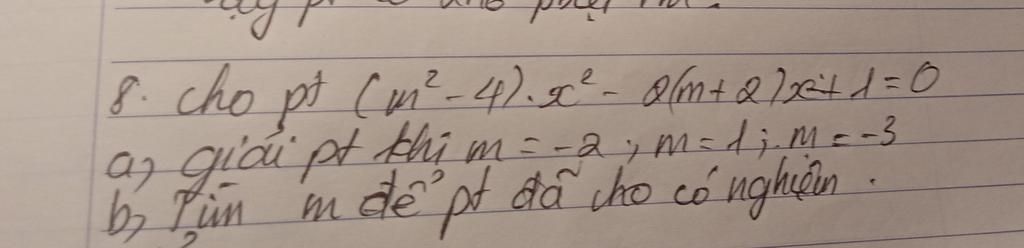 8. cho pt (m² - 4). x² - 2(m+2)x + 1 = 0
a, giải pt khi m = -2 ; m = 1 ; m = -3
b, Tìm m để pt đã cho có nghiệm.